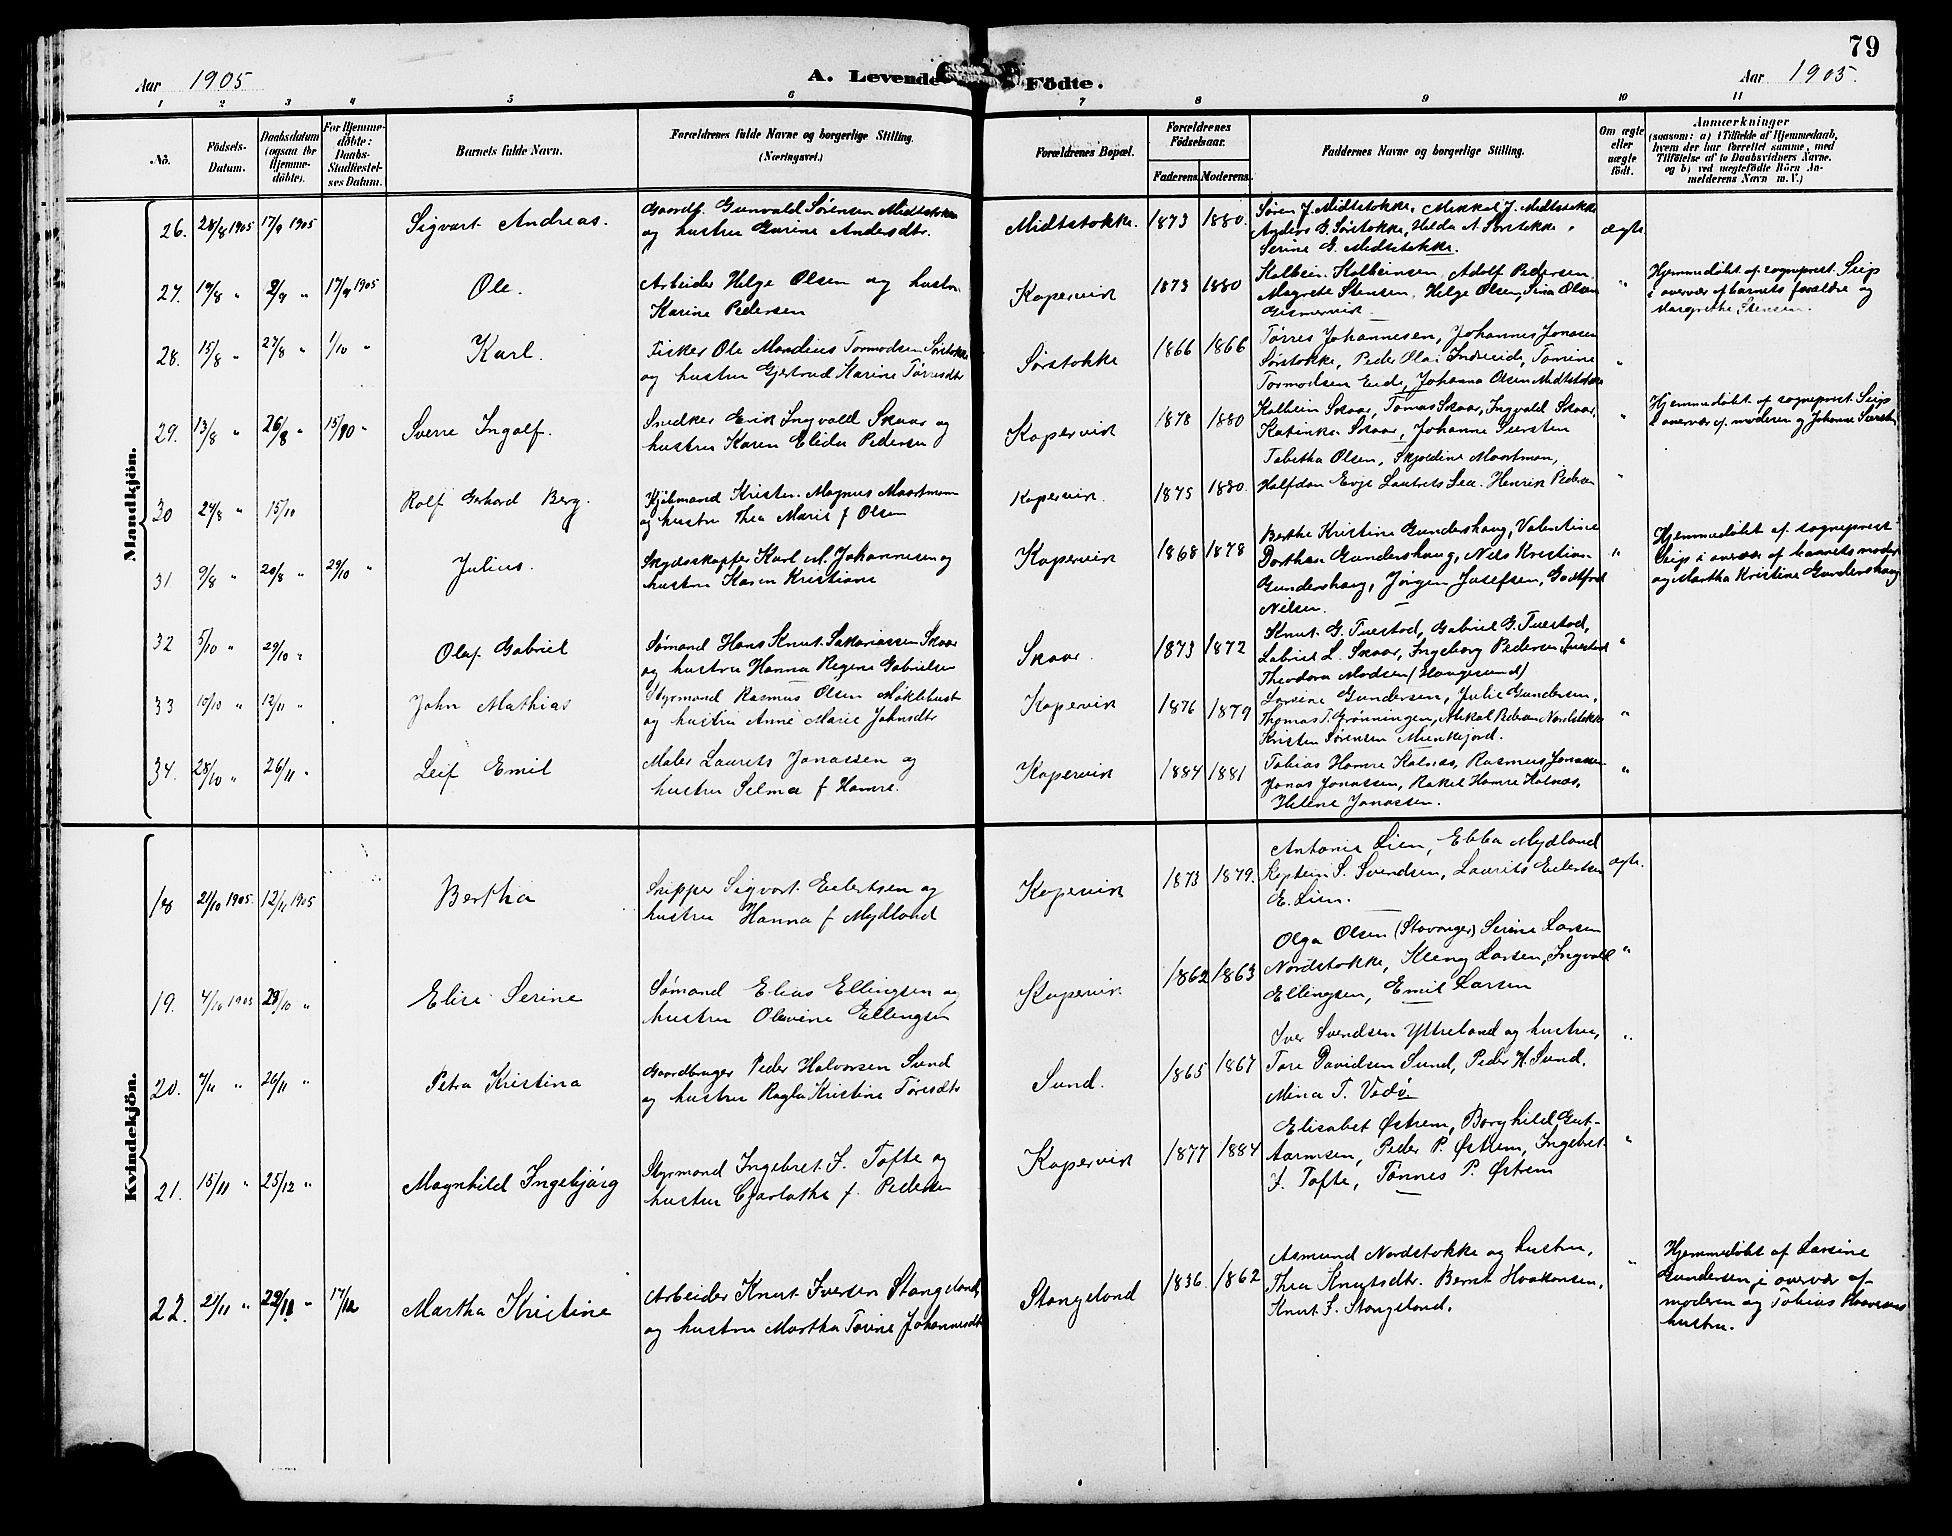 79
Aar 1905
A. Levende Födte.
Aar 1905.
1 2 3 4 5 6 7 8 9 10 11
No. Födsels-Datum. Daabsdatum (ogsaa for Hjemmedöbte). For Hjemmedöbte: Daabs-Stadfæstelses Datum. Barnets fulde Navn. Forældrenes fulde Navne og borgerlige Stilling. (Næringsvei.) Forældrenes Bopæl. Forældrenes Födselsaar. Faderens. Moderens. Faddernes Navne og borgerlige Stilling. Om ægte eller uægte födt. Anmærkninger
(saasom: a) i Tilfælde af Hjemmedaab,
hvem der har forrettet samme, med
Tilföielse af to Daabsvidners Navne.
og b) ved uægtefödte Börn An-
melderens Navn m. V.)
Mandkjön.
26. 28/8 1905 17/9 1905 Sigvart Andreas. Gaardf. Gunvald Sørensen Midtstokke
og hustru Gurine Andersdtr. Midtstokke. 1873 1880. Søren J. Midtstokke, Mikkal J. Midtstokke
Anders G. Sørstokke, Helda A Sørstokke,
Serine G. Midtstokke. ægte.
27. 19/8 " 2/9 " 17/9 1905 Ole. Arbeider Helge Olsen og hustru
Karine Pedersen Kopervik 1873 1880 Kolbein Kolbeinsen, Adolf Pedersen
Magrete Stensen, Helge Olsen, Sina Olsen
Gismervik. " Hjemmedøbt af sogneprest Seip
i overvær af barnets forældre og
Margrethe Stensen.
28. 15/8 " 27/8 " 1/10 " Karl. Fisker Ole Mandius Tormodsen Sørstokke
og hustru Gjertrud Karine Tørresdtr Sørstokke 1866 1866 Tørres Johannesen, Johannes Jonasen
Sørstokke, Peder Olai Indreeide, Tomine
Tormodsen Eide, Johanna Olsen Midtstokke "
29. 13/8 " 26/8 " 15/10 " Sverre Ingolf. Snedker Erik Ingvald Skaar og
hustru Karen Elida Pedersen Kopervik 1878 1880 Kolbein Skaar, Tomas Skaar, Ingvald Skaar,
Katinka Skaar, Johanne Siersten " Hjemmedøbt af sogneprest Seip
i overvær af moderen og Johanne Siersten
30 24/8 " 15/10 Rolf Gerhard Berg. Kjøbmand Kristen Magnus Maartman
og hustru Thea Marie f Olsen Kopervik. 1875 1880. Tabitha Olsen, Skjoldine Maartman,
Halfdan Evje Laurits Lea. Henrik Pedersen "
31 9/8 " 20/8 " 29/10 " Julius. Skydsskaffer Karl M. Johannesen og
hustru Karen Kristiane Kopervik 1868 1878 Berthe Kristine Gundershaug, Valentine
Dorthea Gundershaug, Nils Kristian
Gundershaug, Jørgen Josefsen, Godtfred
Nilsen. " Hjemmedøbt af sogneprest
Seip i overvær af barnets moder
og Martha Kristine Gundershaug
32 5/10 " 29/10 " Olaf Gabriel Sømand Hans Knut Sakariassen Skaar
og hustru Hanna Regine Gabrielsen Skaar. 1873 1872 Knut G. Tuestad, Gabriel G. Tuestad,
Gabriel L. Skaar, Ingeborg Pedersen Tuestad
Theodora Madsen (Haugesund) "
33 10/10 " 12/11 " John Mathias Styrmand Rasmus Olsen Møklebust
og hustru Anne Marie Johnsdtr Kopervik 1876 1879 Larsine Gundersen, Julie Gundersen,
Thomas T. Grønningen, Mikal Pedersen Nordstokke
Kristen Sørensen Munkejord. "
34. 28/10 " 26/11 " Leif Emil Maler Laurits Jonassen og
hustru Selma f Hamre. Kopervik 1884 1881 Tobias Hamre Kalnæs, Rasmus Jonassen
Jonas Jonassen, Rakel Hamre Kalnæs,
Helene Jonassen. "
Kvindekjön.
18 21/10 1905. 12/11 1905 Bertha Skipper Sigvart Eilertsen og
hustru Hanna f Mydland Kopervik 1873 1879. Antonie Lien, Ebba Mydland
Kaptein S. Svendsen, Laurits Eilertsen
E. Lien. ægte.
19. 4/10 1905 29/10 " Elise Serine Sømand Elias Ellingsen og
hustru Olevine Ellingsen Kopervik 1862 1863 Olga Olsen (Stavanger) Serine Larsen
Nordstokke, Kleng Larsen, Ingvald
Ellingsen, Emil Larsen "
20. 7/11 " 26/11 " Petra Kristina Gaardbruger Peder Halvorsen Sund
og hustru Ragla Kristine Tøresdtr Sund. 1865 1867 Iver Svendsen Ytreland og hustru,
Tore Davidsen Sund, Peder H. Sund,
Mina T. Vedø. "
21. 15/11 " 25/12 " Magnhild Ingebjørg Styrmand Ingebret I. Tofte og
hustru Charlotha f. Pedersen Kopervik 1877 1884 Elisabet Østrem, Borghild Gut-
tormsen, Peder P. Østrem, Ingebret
I. Tofte, Tønnes P. Østrem "
22. 21/11 " 22/11 " 17/12 Martha Kristine Arbeider Knut Iversen Stangeland,
og hustru Martha Torine Johannesdtr Stangeland 1836. 1862 Asmund Nordstokke og hustru,
Thea Knutsdtr. Bernt Haakonsen,
Knut I. Stangeland. " Hjemmedøbt af Larsine
Gundersen, i overvær af
moderen og Tobias
hustru.